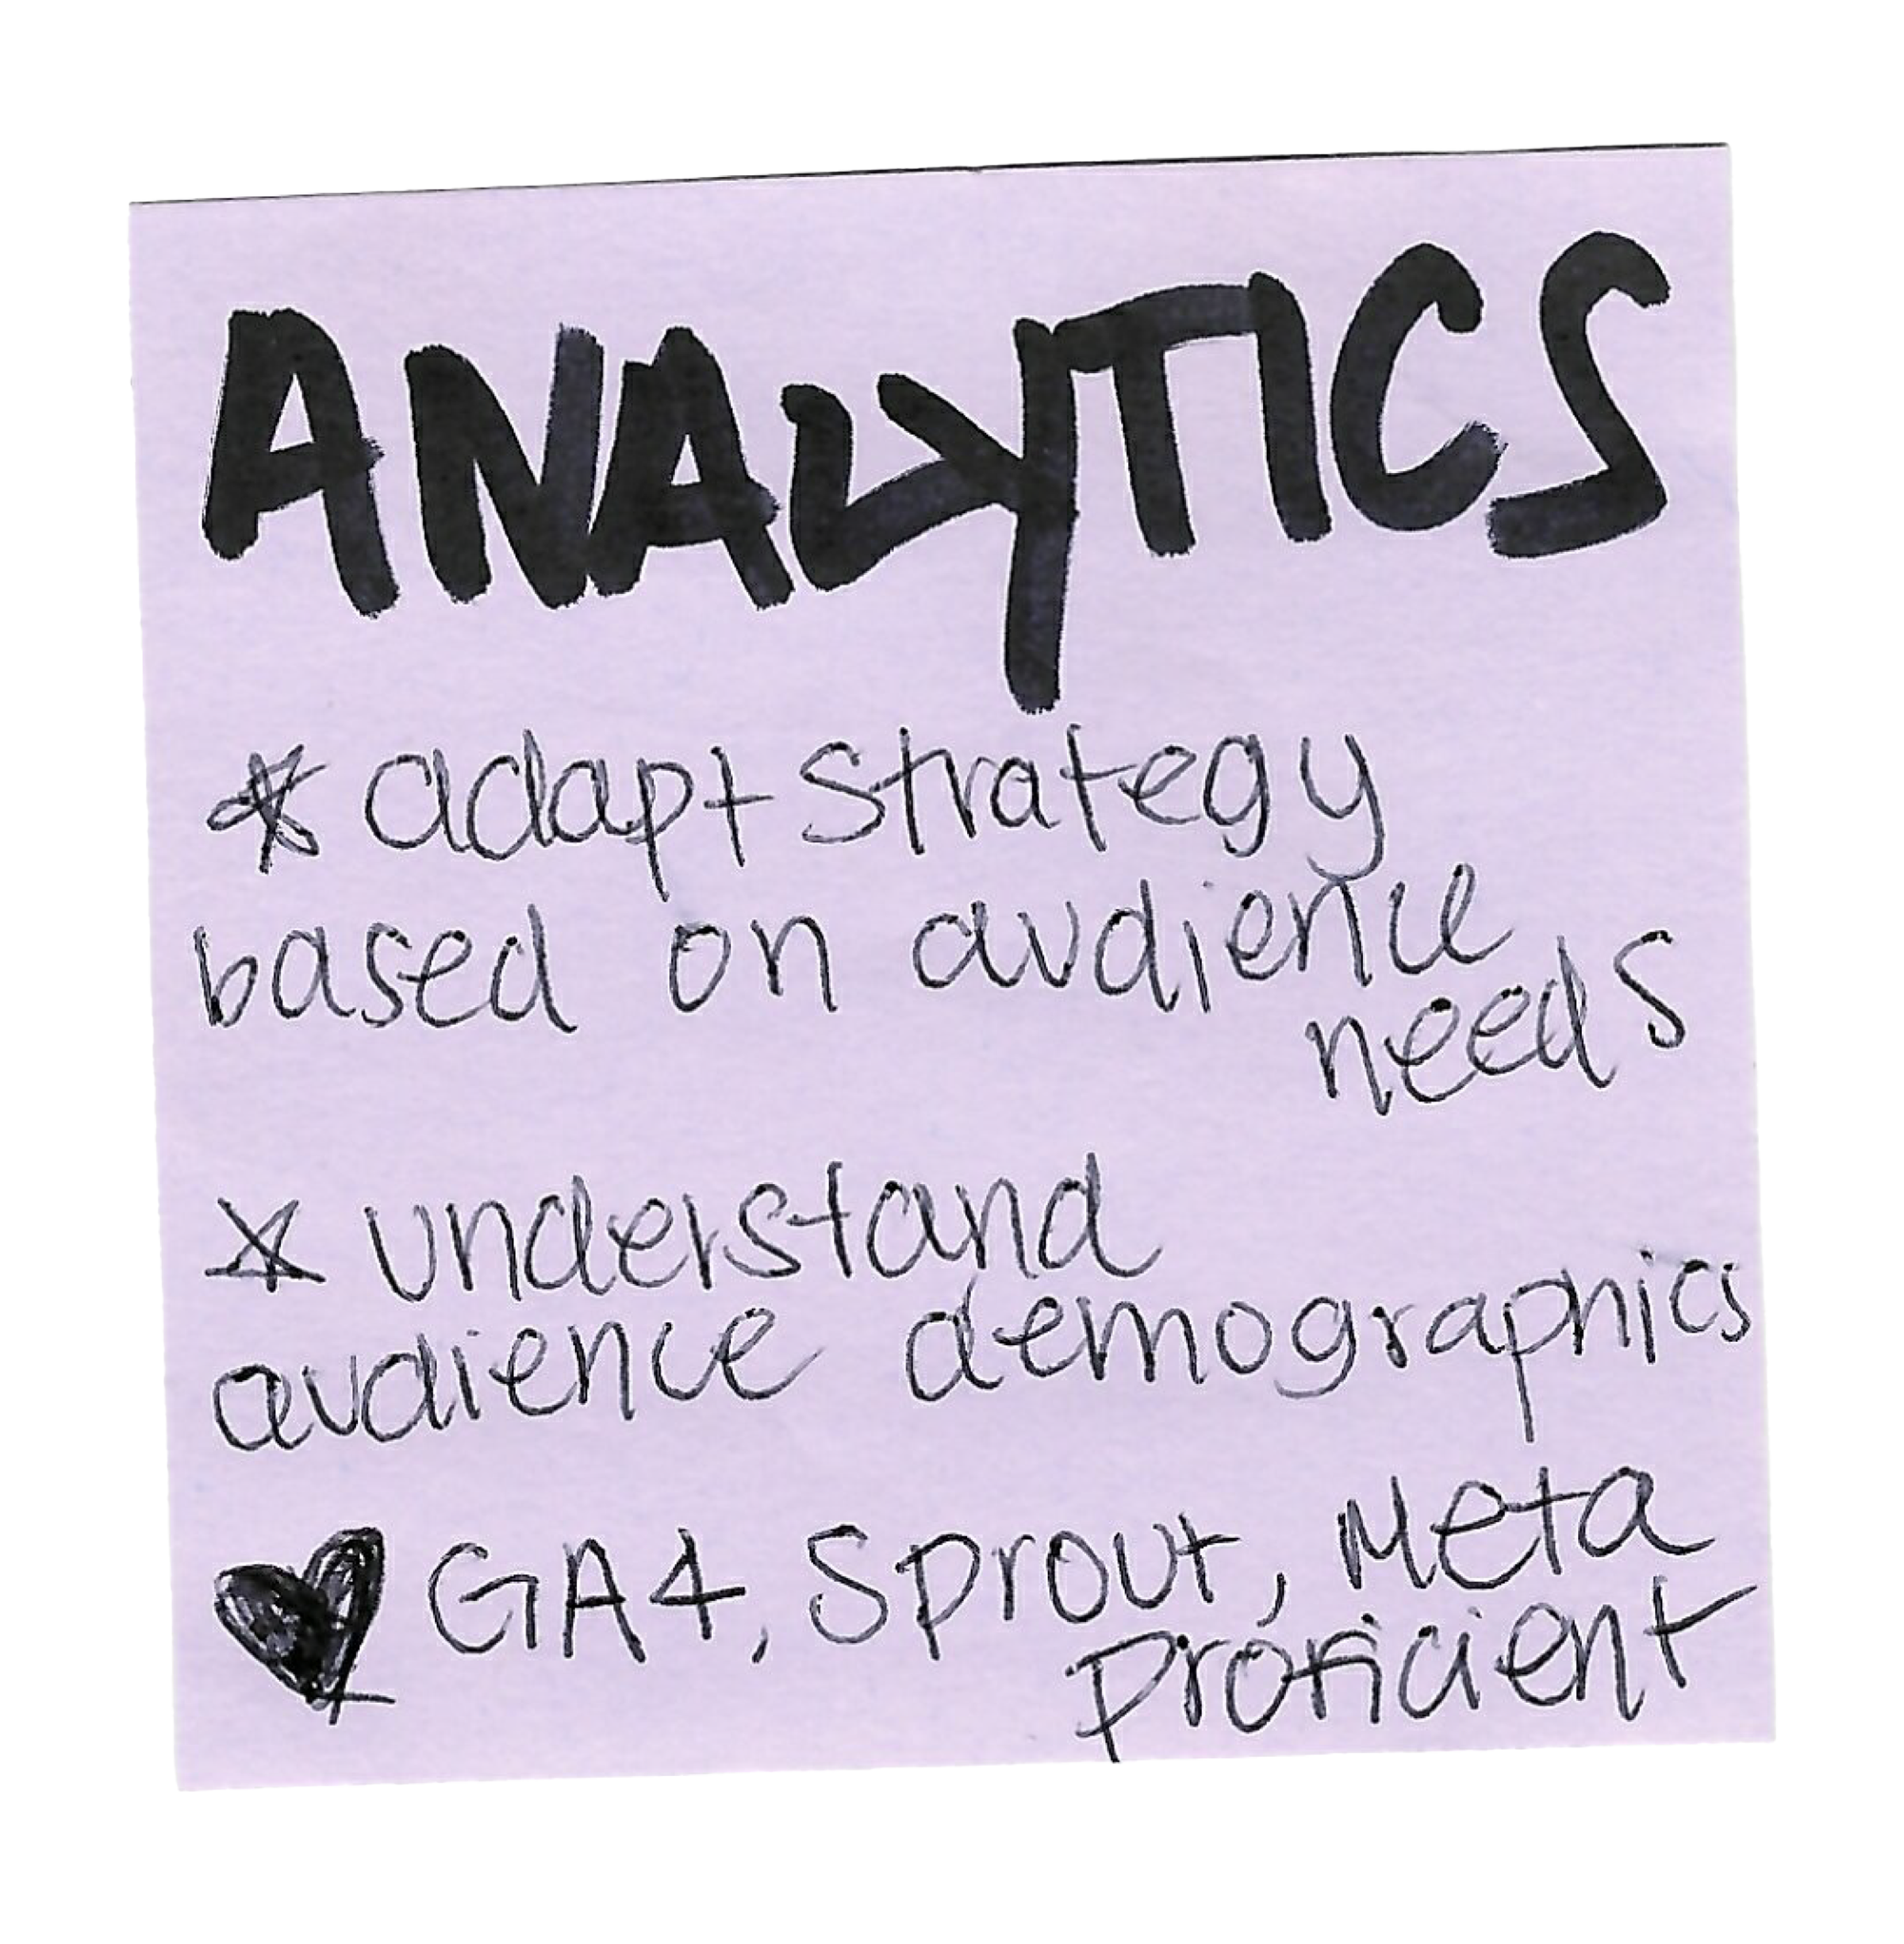 ANALYTICS
* adapt strategy
based on audience
needs
* understand
audience demographics
♥ GA4, Sprout, Meta
Proficient